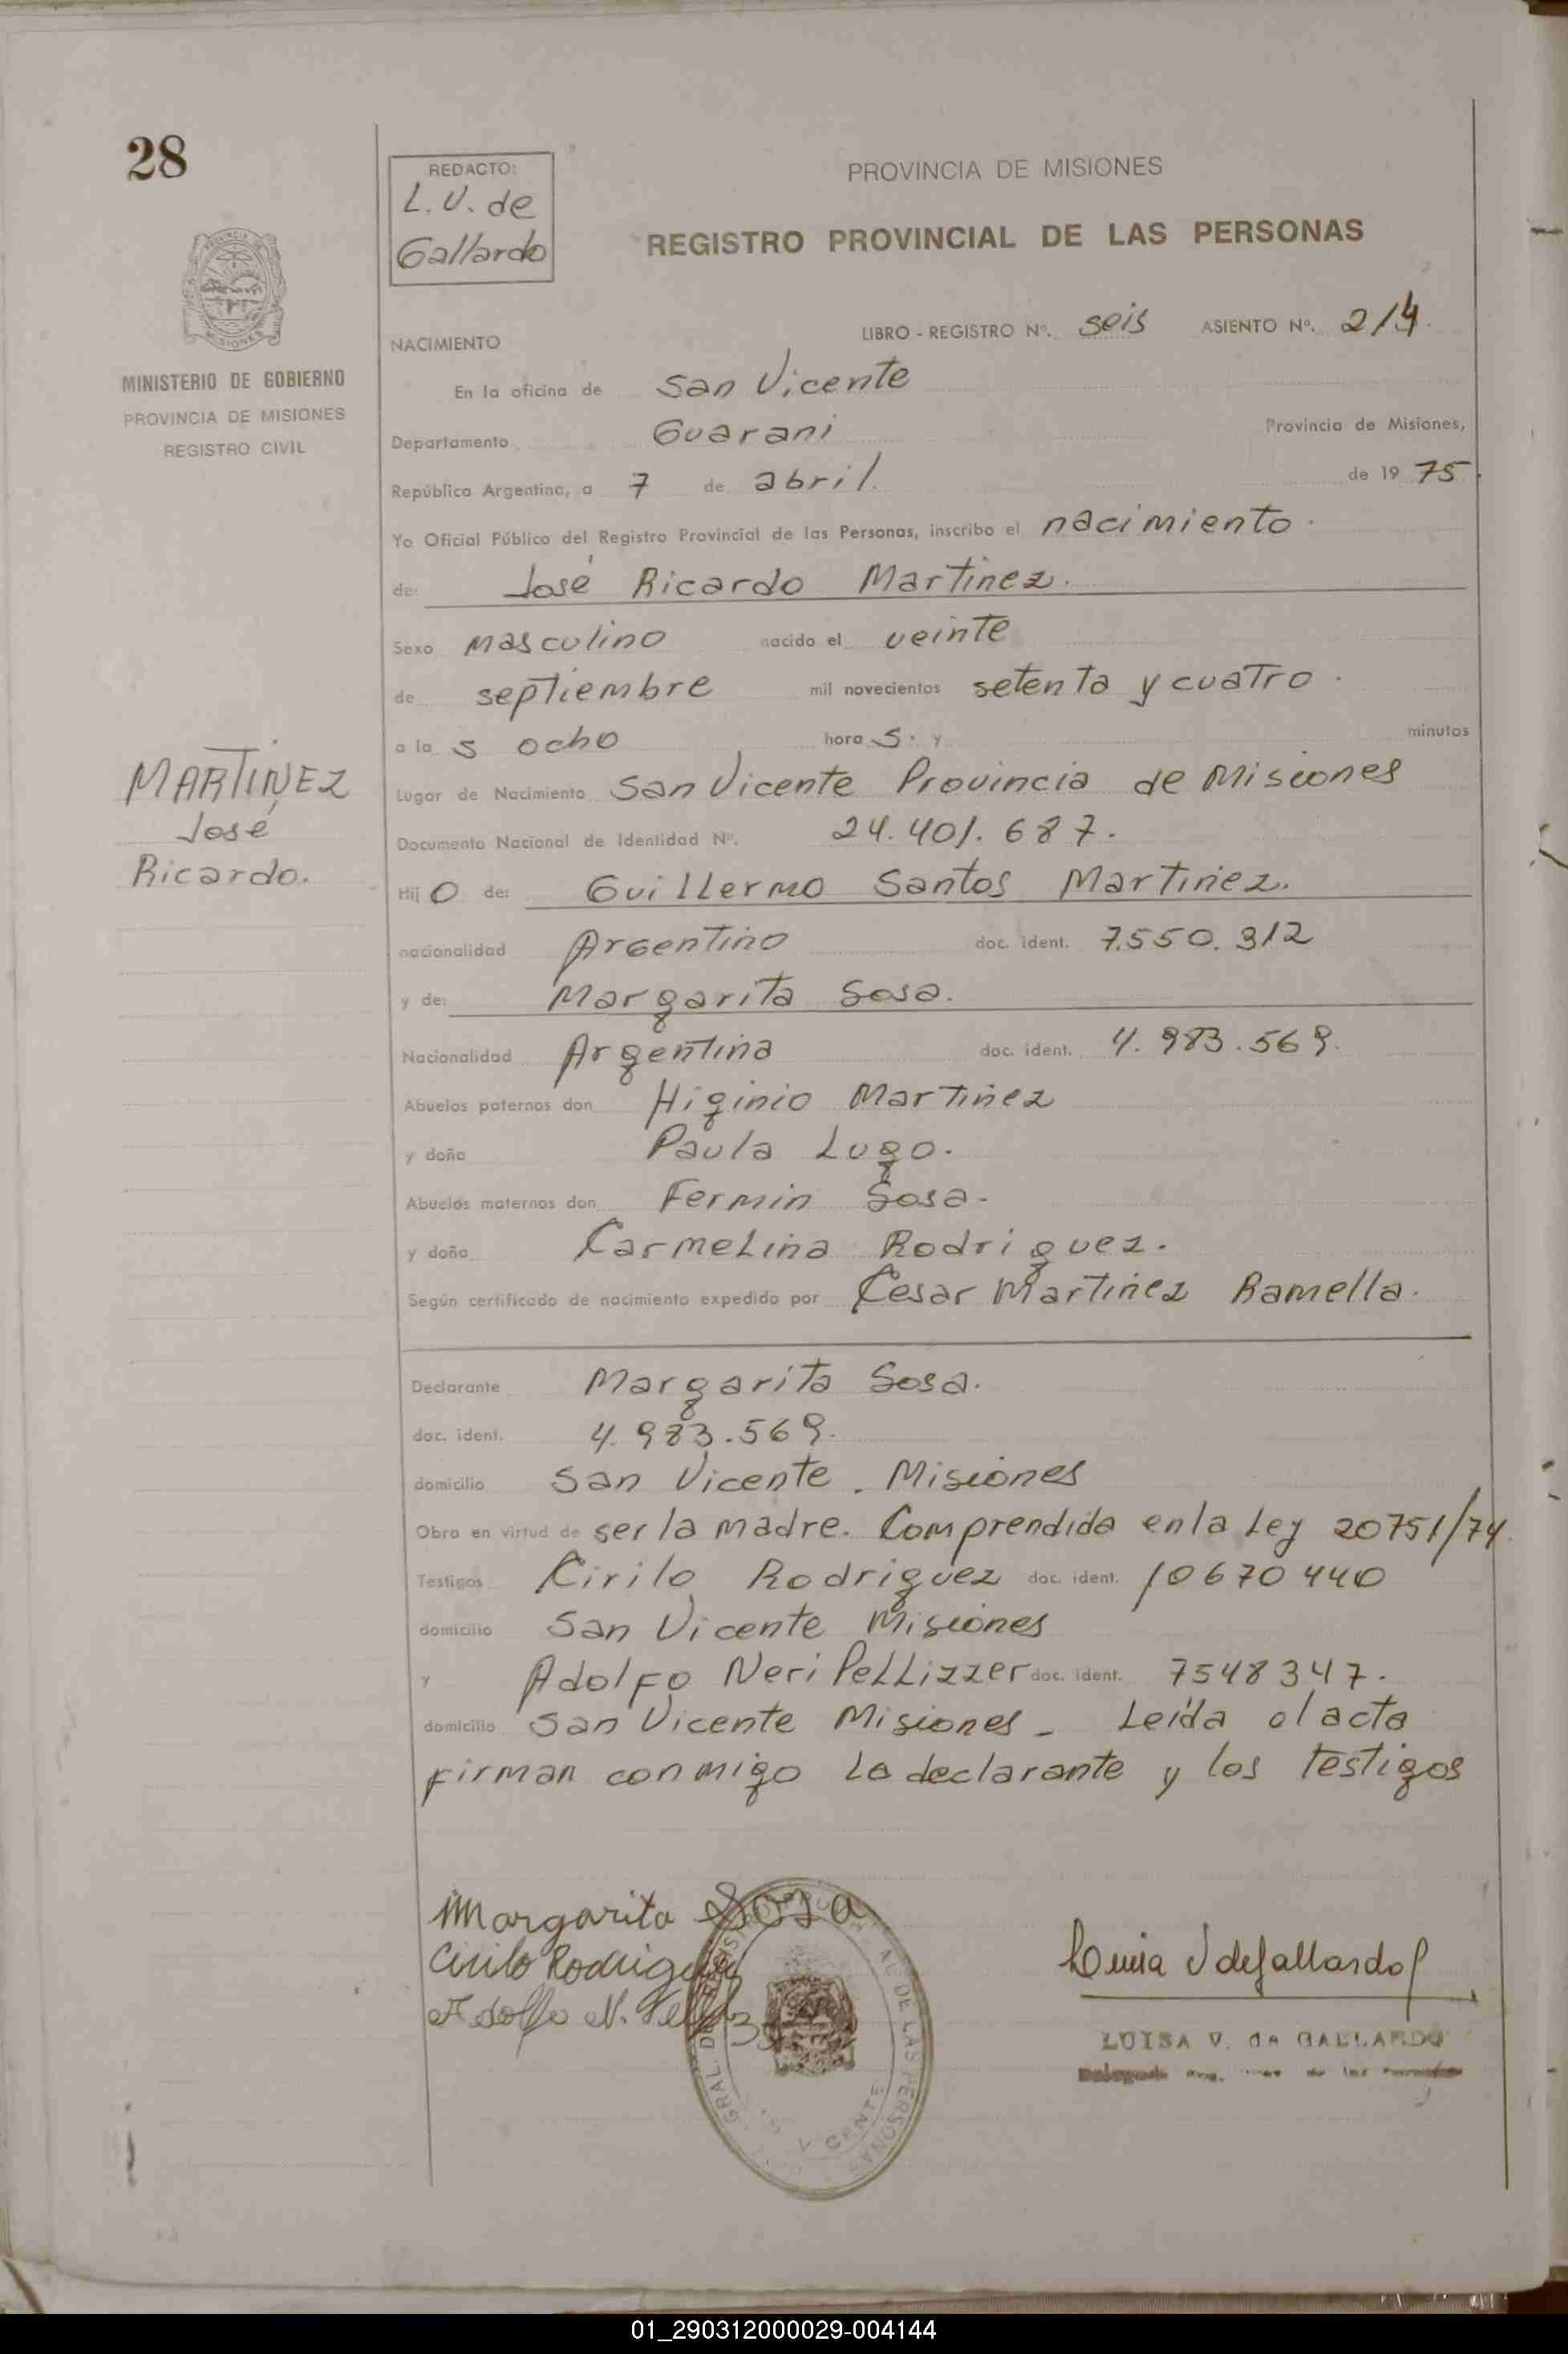 28
REDACTO:
L.V. de
Gallardo
PROVINCIA DE MISIONES
REGISTRO PROVINCIAL DE LAS PERSONAS
MINISTERIO DE GOBIERNO
PROVINCIA DE MISIONES
REGISTRO CIVIL
NACIMIENTO
LIBRO - REGISTRO Nº. seis ASIENTO Nº. 214.
En la oficina de San Vicente
Departamento Guarani Provincia de Misiones,
República Argentina, a 7 de abril. de 19 75
Yo Oficial Público del Registro Provincial de las Personas, inscribo el nacimiento.
de: José Ricardo Martinez.
Sexo masculino nacido el veinte
de septiembre mil novecientos setenta y cuatro.
a la s ocho hora s. y minutos
MARTINEZ
José
Ricardo.
Lugar de Nacimiento San Vicente Provincia de Misiones
Documento Nacional de Identidad Nº. 24.401.687.
Hij o de: Guillermo Santos Martinez.
nacionalidad Argentino doc. ident. 7.550.312
y de: Margarita Sosa.
Nacionalidad Argentina doc. ident. 4.983.569.
Abuelos paternos don Higinio Martinez
y doña Paula Lugo.
Abuelos maternos don Fermin Sosa-
y doña Carmelina Rodriguez.
Según certificado de nacimiento expedido por Cesar Martinez Ramella.
Declarante Margarita Sosa.
doc. ident. 4.983.569.
domicilio San Vicente. Misiones
Obra en virtud de ser la madre. Comprendida en la Ley 20751/74
Testigos Cirilo Rodriguez doc. ident. 10670440
domicilio San Vicente Misiones
y Adolfo Neri Pellizzer doc. ident. 7548347.
domicilio San Vicente Misiones - Leída el acta
firman conmigo la declarante y los testigos
Margarita Sosa
Cirilo Rodriguez
Adolfo N.
Luisa V de Gallardo
LUISA V. de GALLARDO
01_290312000029-004144